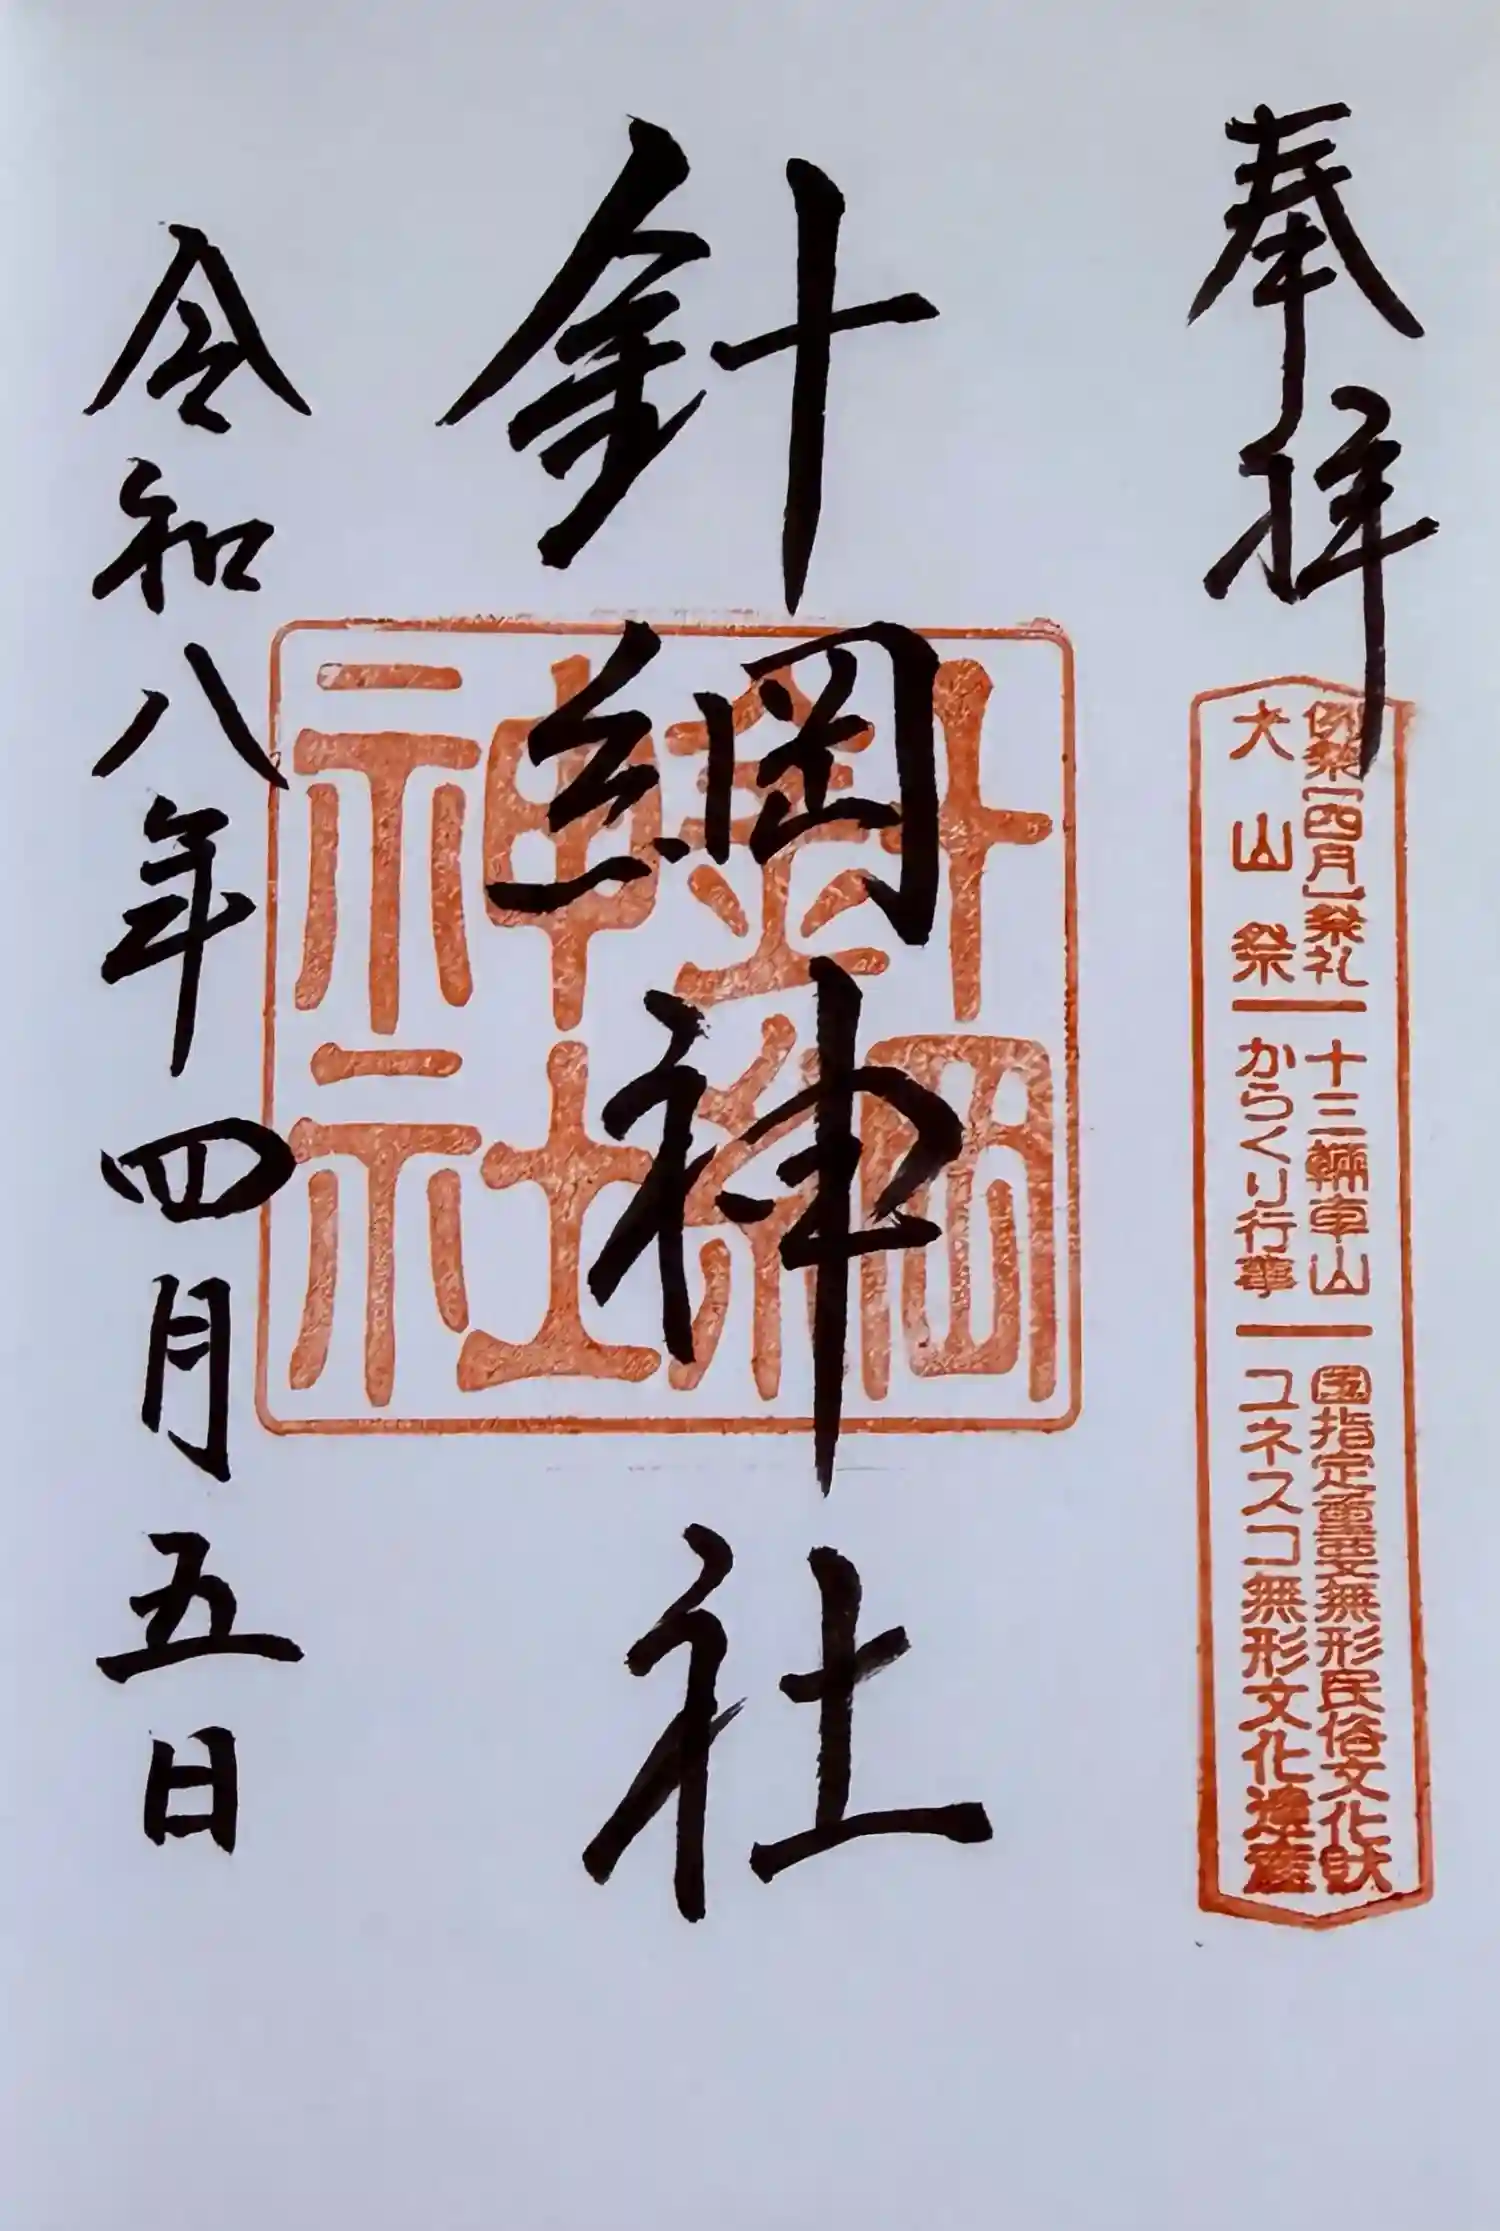 奉拝
例祭［四月］祭礼ー十三輛車山ー国指定重要無形民俗文化財
犬山祭ーからくり行事ーユネスコ無形文化遺産
針綱神社
針綱神社
令和八年四月五日